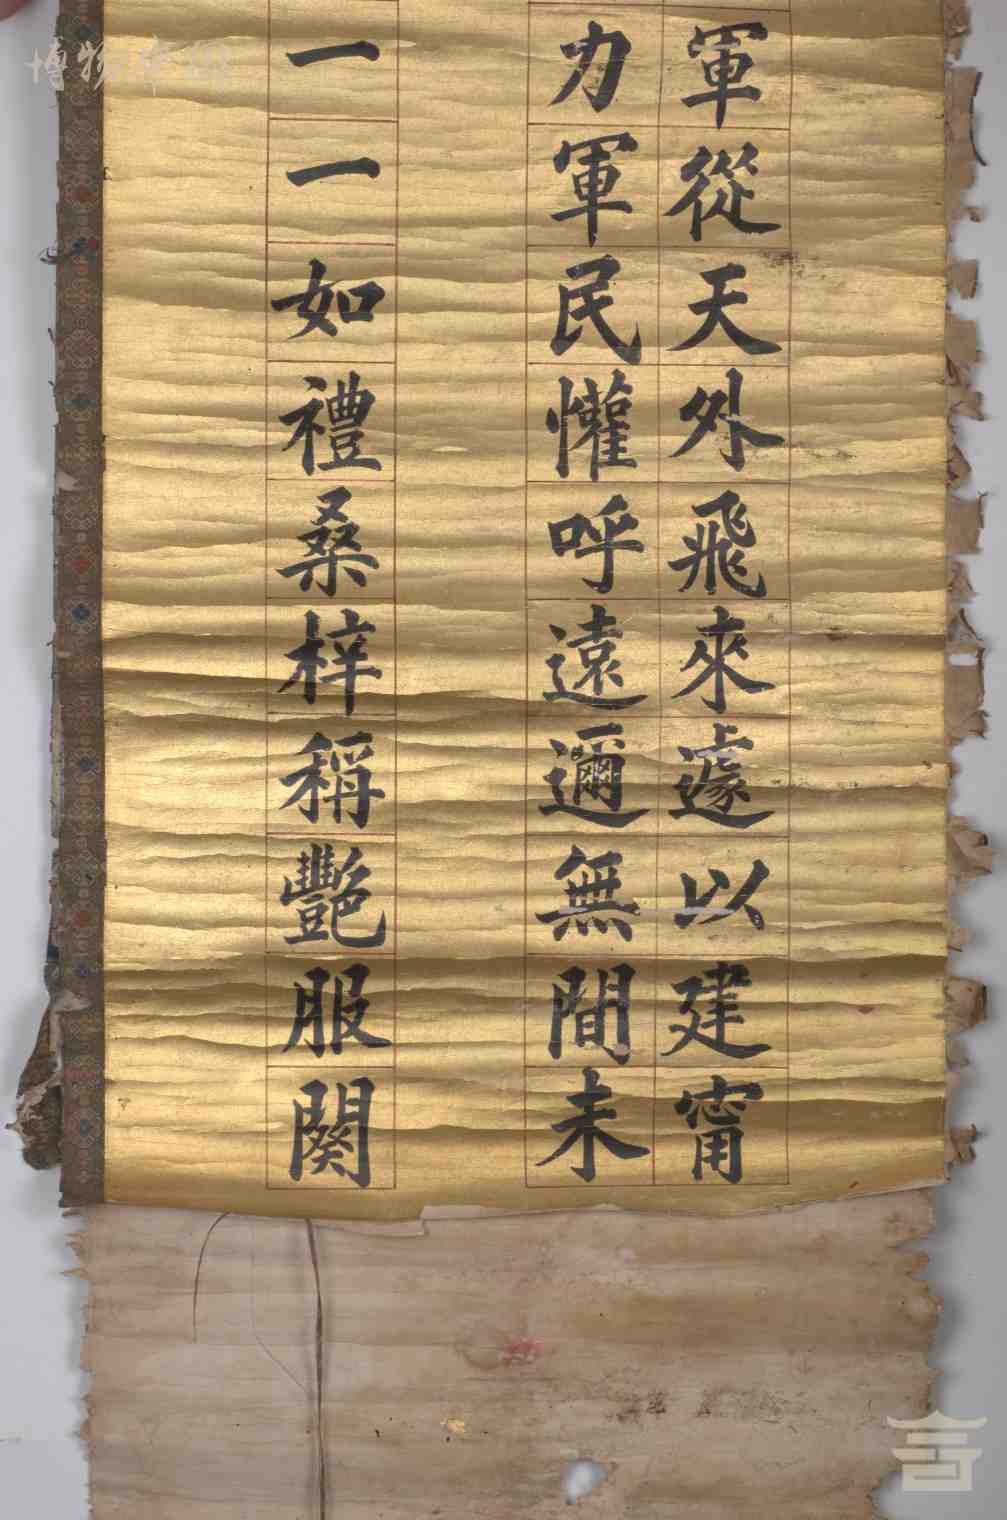 軍從天外飛來遽以建甯
力軍民懽呼遠邇無間未
一一如禮桑梓稱艷服闋